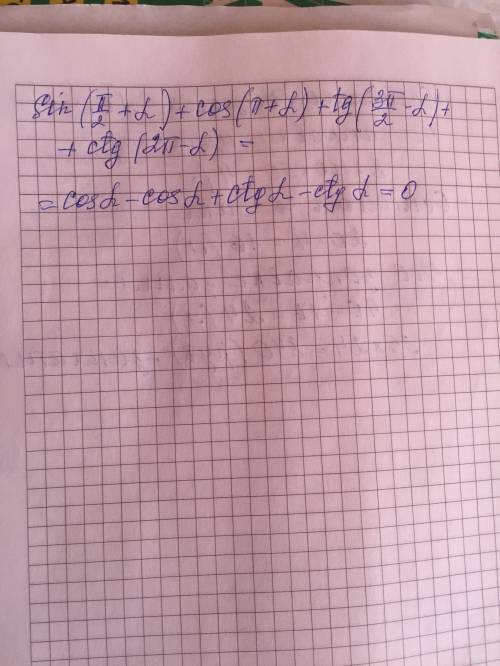 Sin (π/2 + α) + cos (π + α) + tg (3π/2 - α) +
+ ctg (2π - α) =
= cos α - cos α + ctg α - ctg α = 0